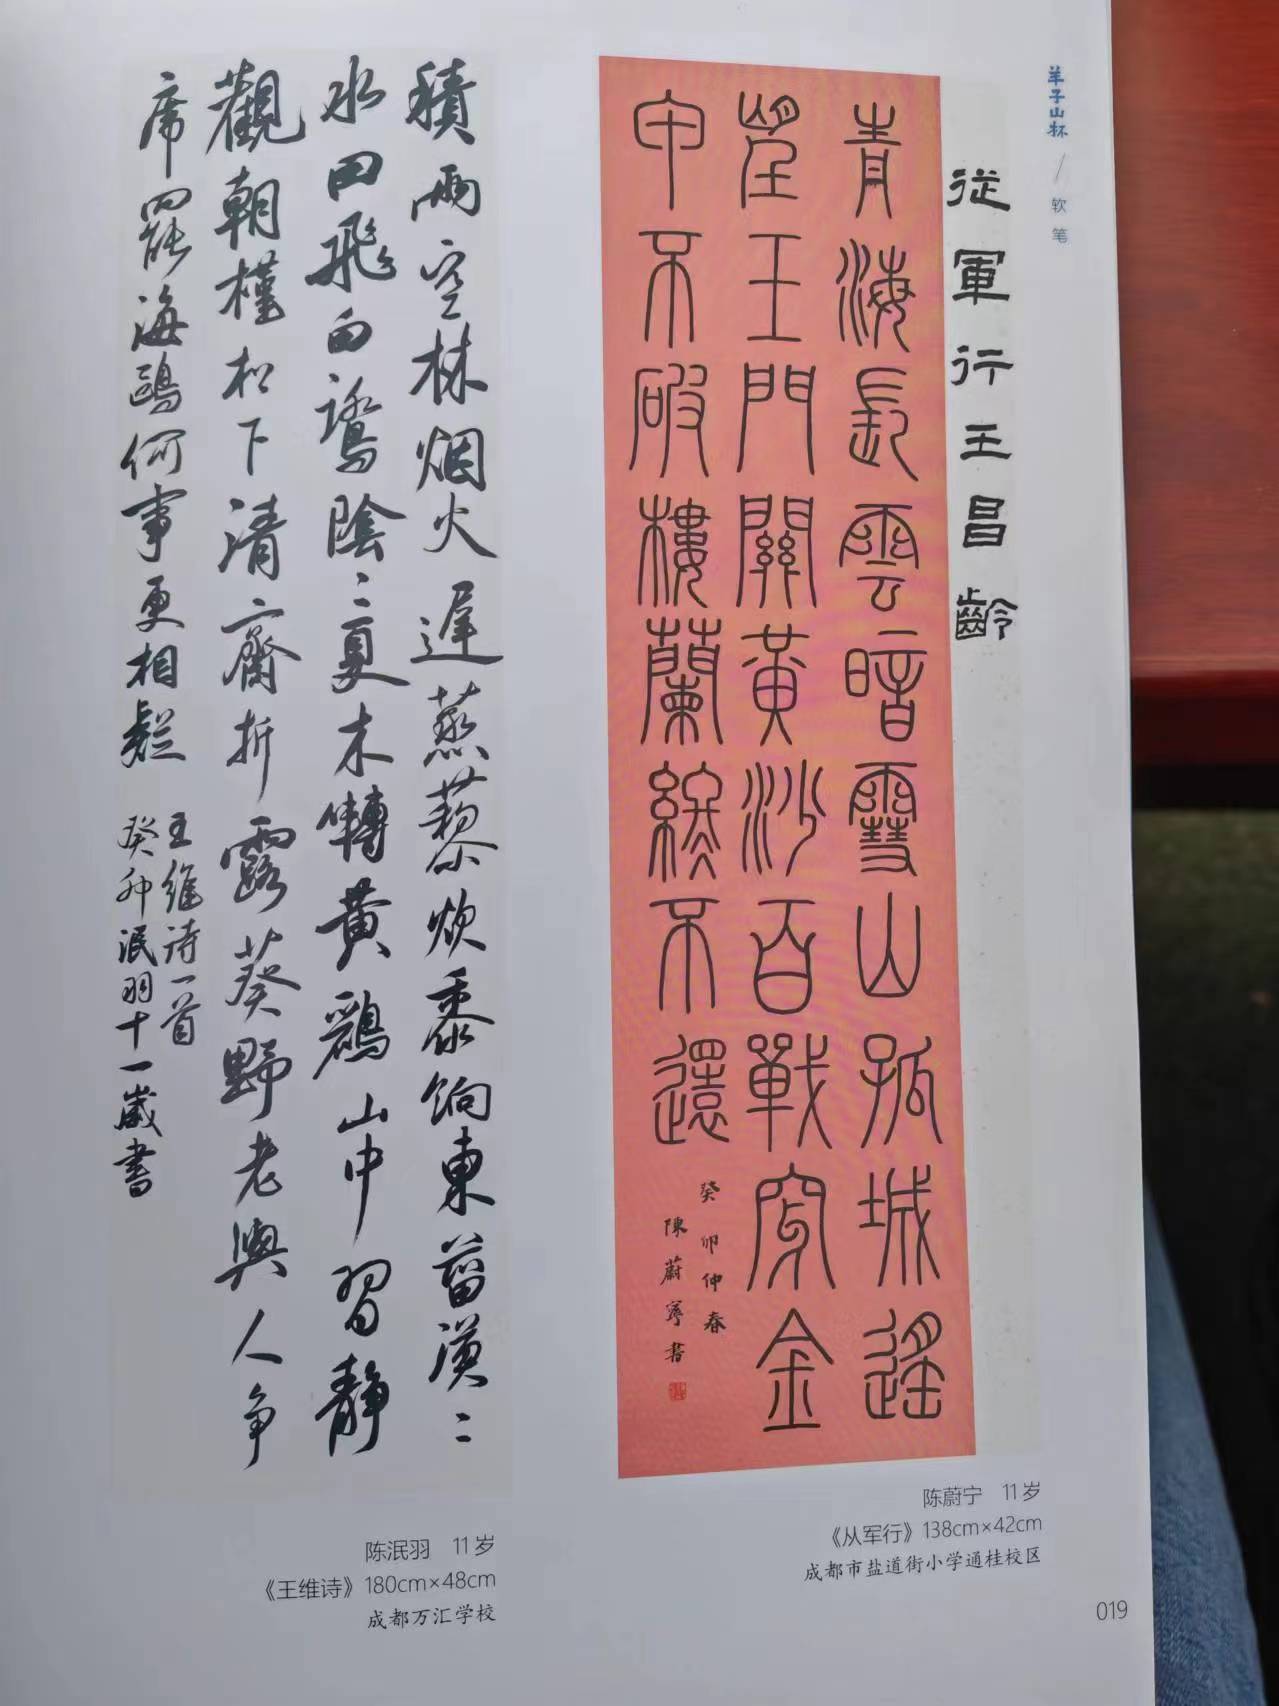 羊子山杯 / 软笔
從軍行王昌齡
青海長雲暗雪山孤城遙
望玉門關黃沙百戰穿金
甲不破樓蘭終不還
癸卯仲春
陳蔚寧書
陈蔚宁 11岁
《从军行》138cm×42cm
成都市盐道街小学通桂校区
積雨空林烟火遲蒸藜炊黍饷東菑漠〻
水田飛白鷺陰〻夏木囀黃鸝山中習靜
觀朝槿松下清齋折露葵野老與人争
席罷海鷗何事更相疑
王維诗一首
癸卯泯羽十一歲書
陈泯羽 11岁
《王维诗》180cm×48cm
成都万汇学校
019